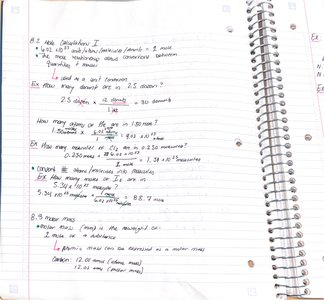 8.2 Mole Calculations I
• 6.02 x 10²³ units/atoms/molecules/donuts = 1 mole
• The mole relationship allows conversions between
quantities + masses
↳ used as a unit conversion
Ex How many donuts are in 2.5 dozen?
2.5 dozen x 12 donuts / 1 dz = 30 donuts
How many atoms of He are in 1.50 mole?
1.50 moles x 6.02 / 1 = 9.03 x 10²³ atoms
Ex How many molecules of Cl₂ are in 0.230 moles?
0.230 moles x 6.02 x 10²³ / 1 mole = 1.38 x 10²³ molecules
• Convert # atoms/molecules into moles
Ex How many moles of I₂ are in
5.34 x 10²⁵ molecules?
5.34 x 10²⁵ molecules x 1 mole / 6.02 x 10²³ = 88.7 mole
8.3 Molar Mass
• molar mass (mm) is the
1 mole of a substance
↳ atomic mass can be expressed as a molar mass
Carbon: 12.01 amu (atomic mass)
12.01 (molar mass)
Ex